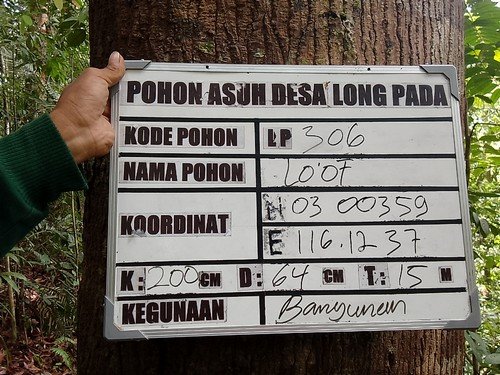 POHON ASUH DESA LONG PADA
KODE POHON LP 306
NAMA POHON LO'OF
KOORDINAT N 03 00359
E 116.12 37
K: 200 CM D: 64 CM T: 15 M
KEGUNAAN Bangunan